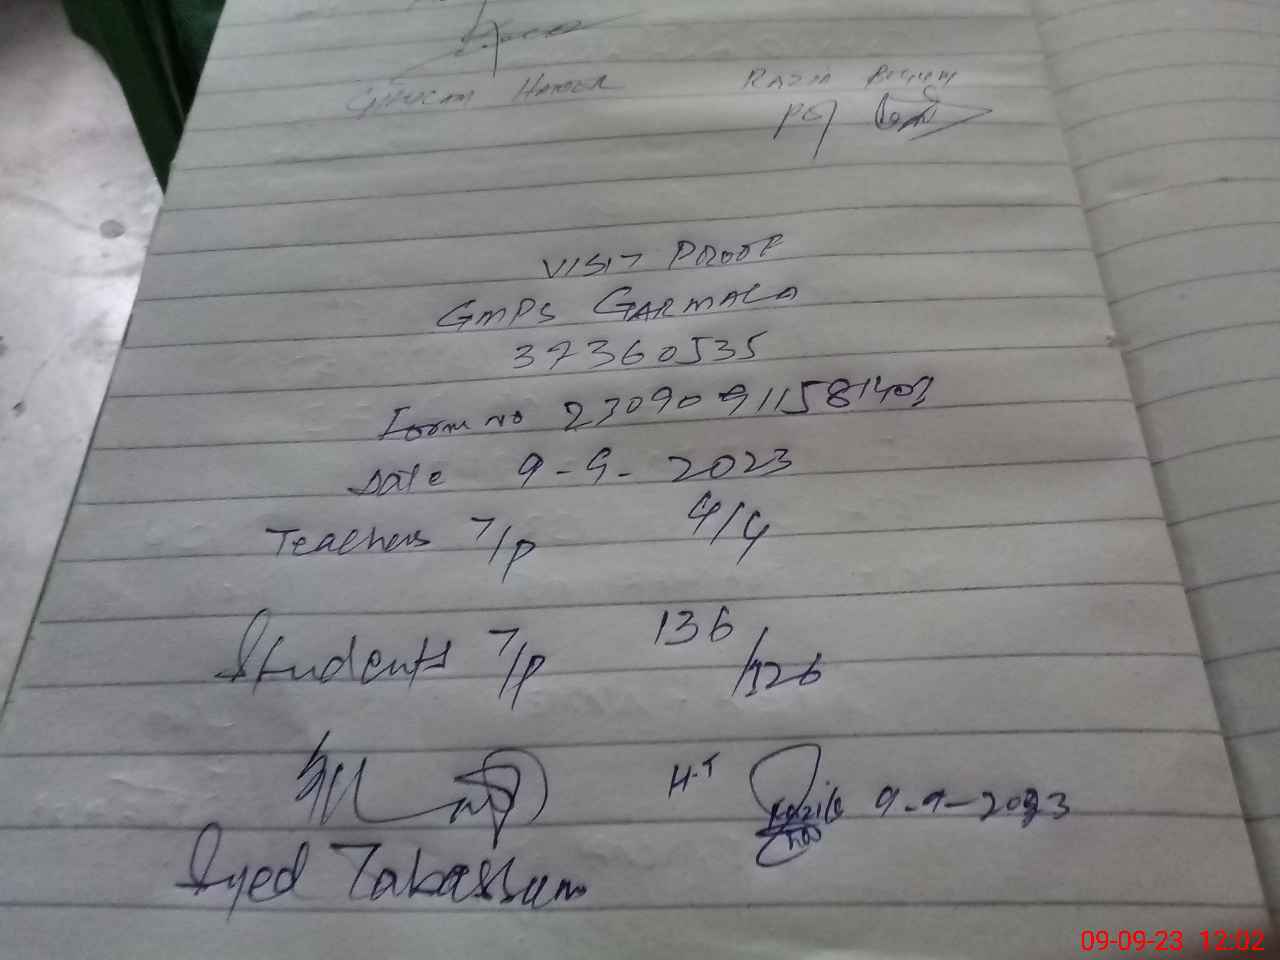 RAZIA BEGUM
VISIT PROOF
GMPS GARMALA
37360535
Form no 23090911581403
Date 9-9-2023
Teachers T/P 4/4
Students T/P 136/126
H.T 9-9-2023
Syed Tabassum
09-09-23 12:02